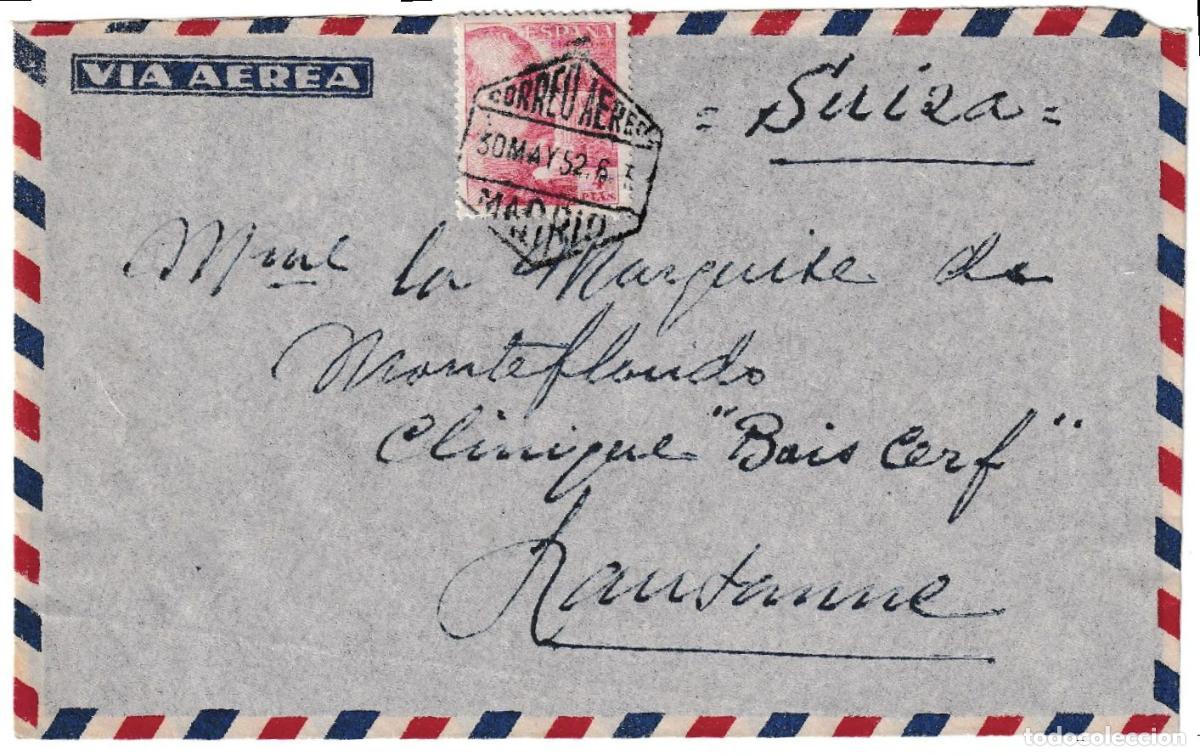 VIA AEREA
ESPAÑA
CORREO AEREO
30 MAY 52. 6
MADRID
PTAS
= Suiza =
Mme la Marquise de
Monteflorido
Clinique "Bois Cerf"
Lausanne
todocoleccion